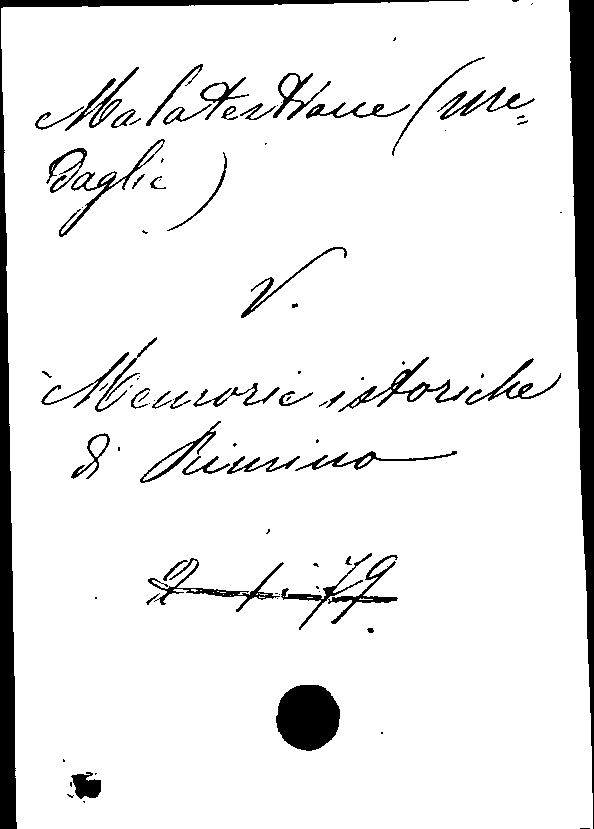 Malatestiane (me=
daglie)
V.
Memorie istoriche
di Rimino
2-1-79.